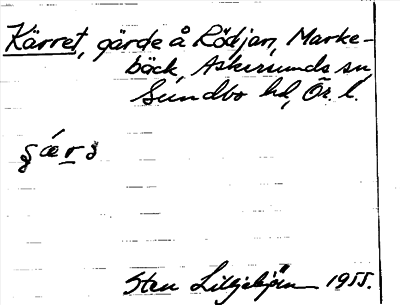 Kärret, gärde å Rödjan, Marke-
bäck, Askersunds sn,
Sundbo hd, Ör. l.
Sten Liljebjörn 1955.